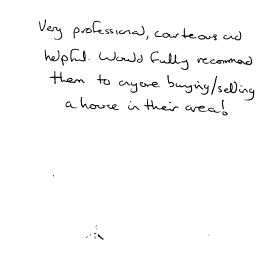 Very professional, courteous and
helpful. Would fully recommend
them to anyone buying/selling
a house in their area!